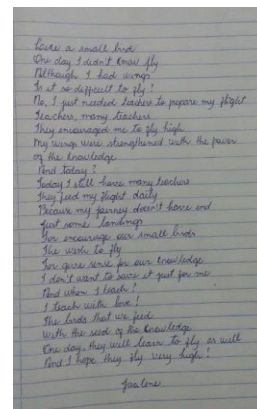 Like a small bird
One day I didn't know fly
Although I had wings
Is it so difficult to fly?
No, I just needed teachers to prepare my flight
Teachers, many teachers
They encouraged me to fly high
My wings were strengthened with the power
of the knowledge
And today?
Today I still have many teachers
They feed my flight daily
Because my journey doesn't have end
Just some landings
For encourage our small birds
The wish to fly
For give sense for our knowledge
I don't want to save it just for me
And when I teach?
I teach with love!
The birds that we feed
With the seed of the knowledge
One day, they will learn to fly as well
And I hope they fly very high!